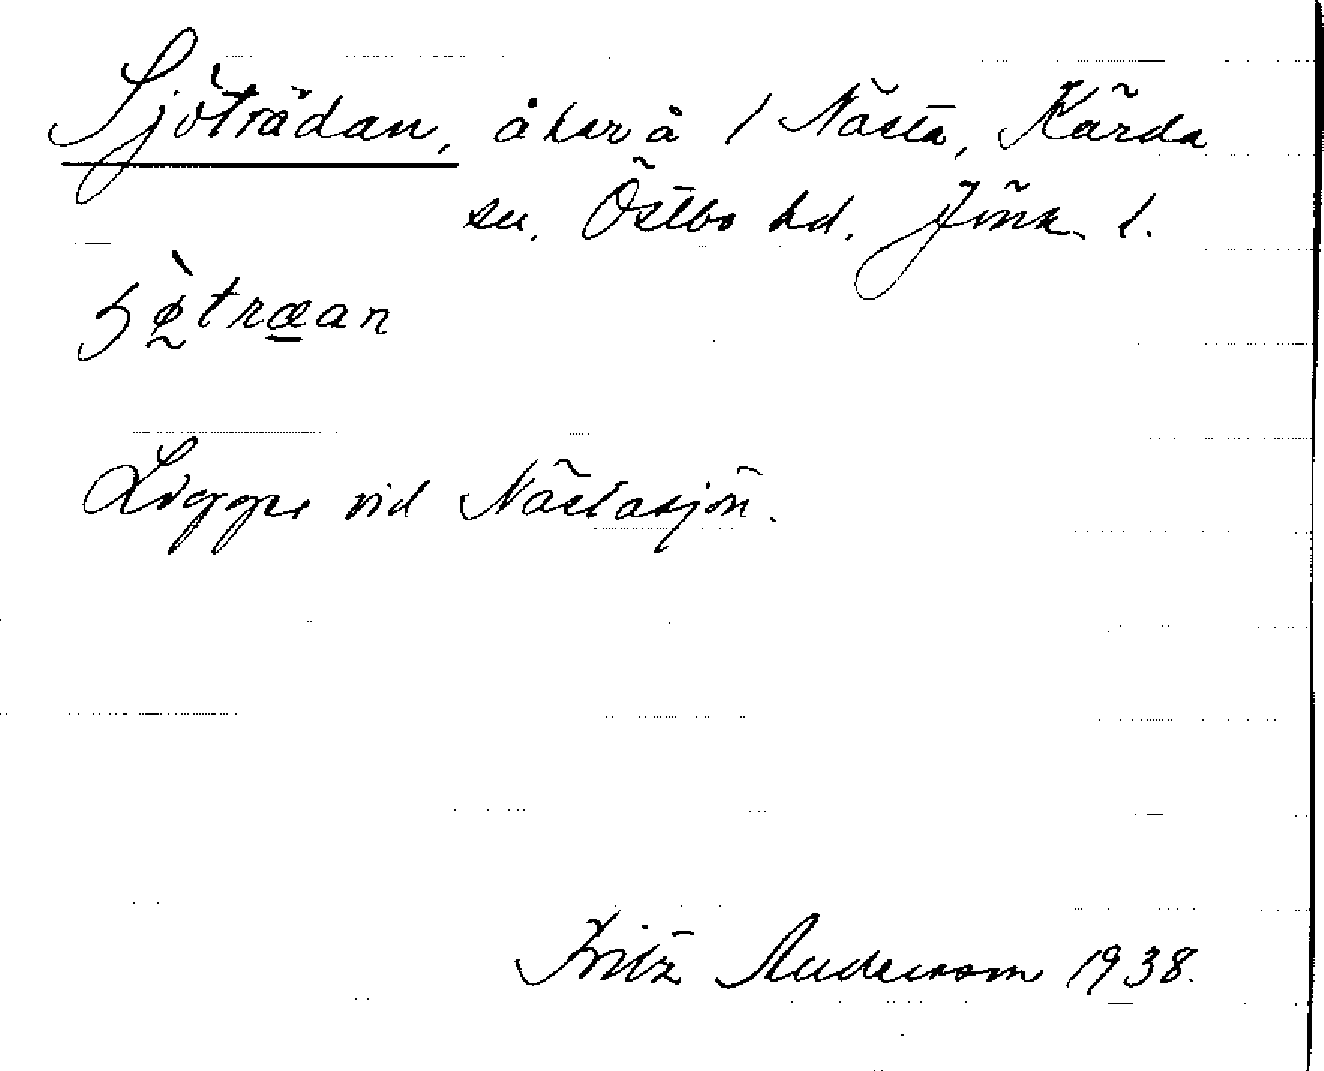 Sjöträdan, åker å 1 Nästa, Kärda
sn. Östbo hd. Jönk. l.
træan
Ligger vid Nästasjön.
Fritz Andersson 1938.